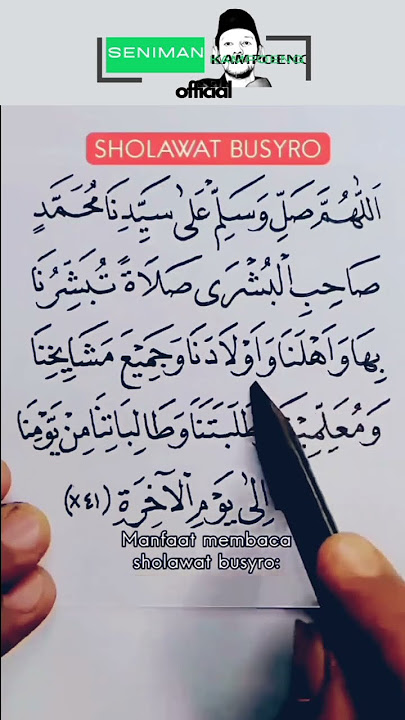 SENIMAN
KAMPOENG
official
SHOLAWAT BUSYRO
اَللّٰهُمَّ صَلِّ وَسَلِّمْ عَلٰى سَيِّدِنَا مُحَمَّدٍ
صَاحِبِ الْبُشْرَى صَلَاةً تُبَشِّرُنَا
بِهَا وَاَهْلَنَا وَاَوْلَادَنَا وَجَمِيْعَ مَشَايِخِنَا
وَطَلَبَتَنَا وَطَالِبَاتِنَا مِنْ يَوْمِنَا
اِلٰى يَوْمِ الْآخِرَةِ (×٤١)
Manfaat membaca
sholawat busyro: